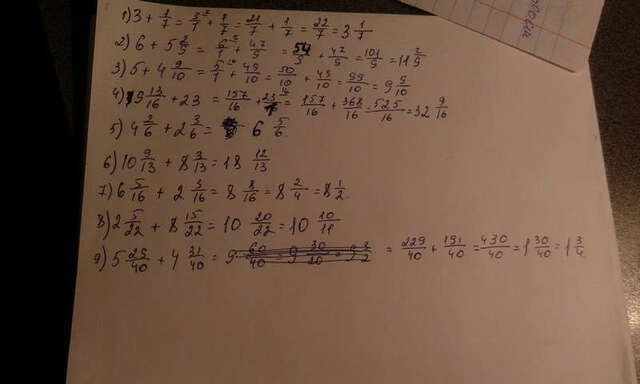 1) 3 + 1/7 = 3/1 + 1/7 = 21/7 + 1/7 = 22/7 = 3 1/7
2) 6 + 5 2/9 = 6/1 + 47/9 = 54/9 + 47/9 = 101/9 = 11 2/9
3) 5 + 4 9/10 = 5/1 + 49/10 = 50/10 + 49/10 = 99/10 = 9 9/10
4) 9 13/16 + 23 = 157/16 + 23/1 = 157/16 + 368/16 = 525/16 = 32 9/16
5) 4 2/6 + 2 3/6 = 6 5/6
6) 10 9/13 + 8 3/13 = 18 12/13
7) 6 5/16 + 2 3/16 = 8 8/16 = 8 2/4 = 8 1/2
8) 2 5/22 + 8 15/22 = 10 20/22 = 10 10/11
9) 5 29/40 + 4 31/40 = 9 60/40 = 9 30/20 = 9 3/2 = 229/40 + 191/40 = 430/40 = 1 30/40 = 1 3/4